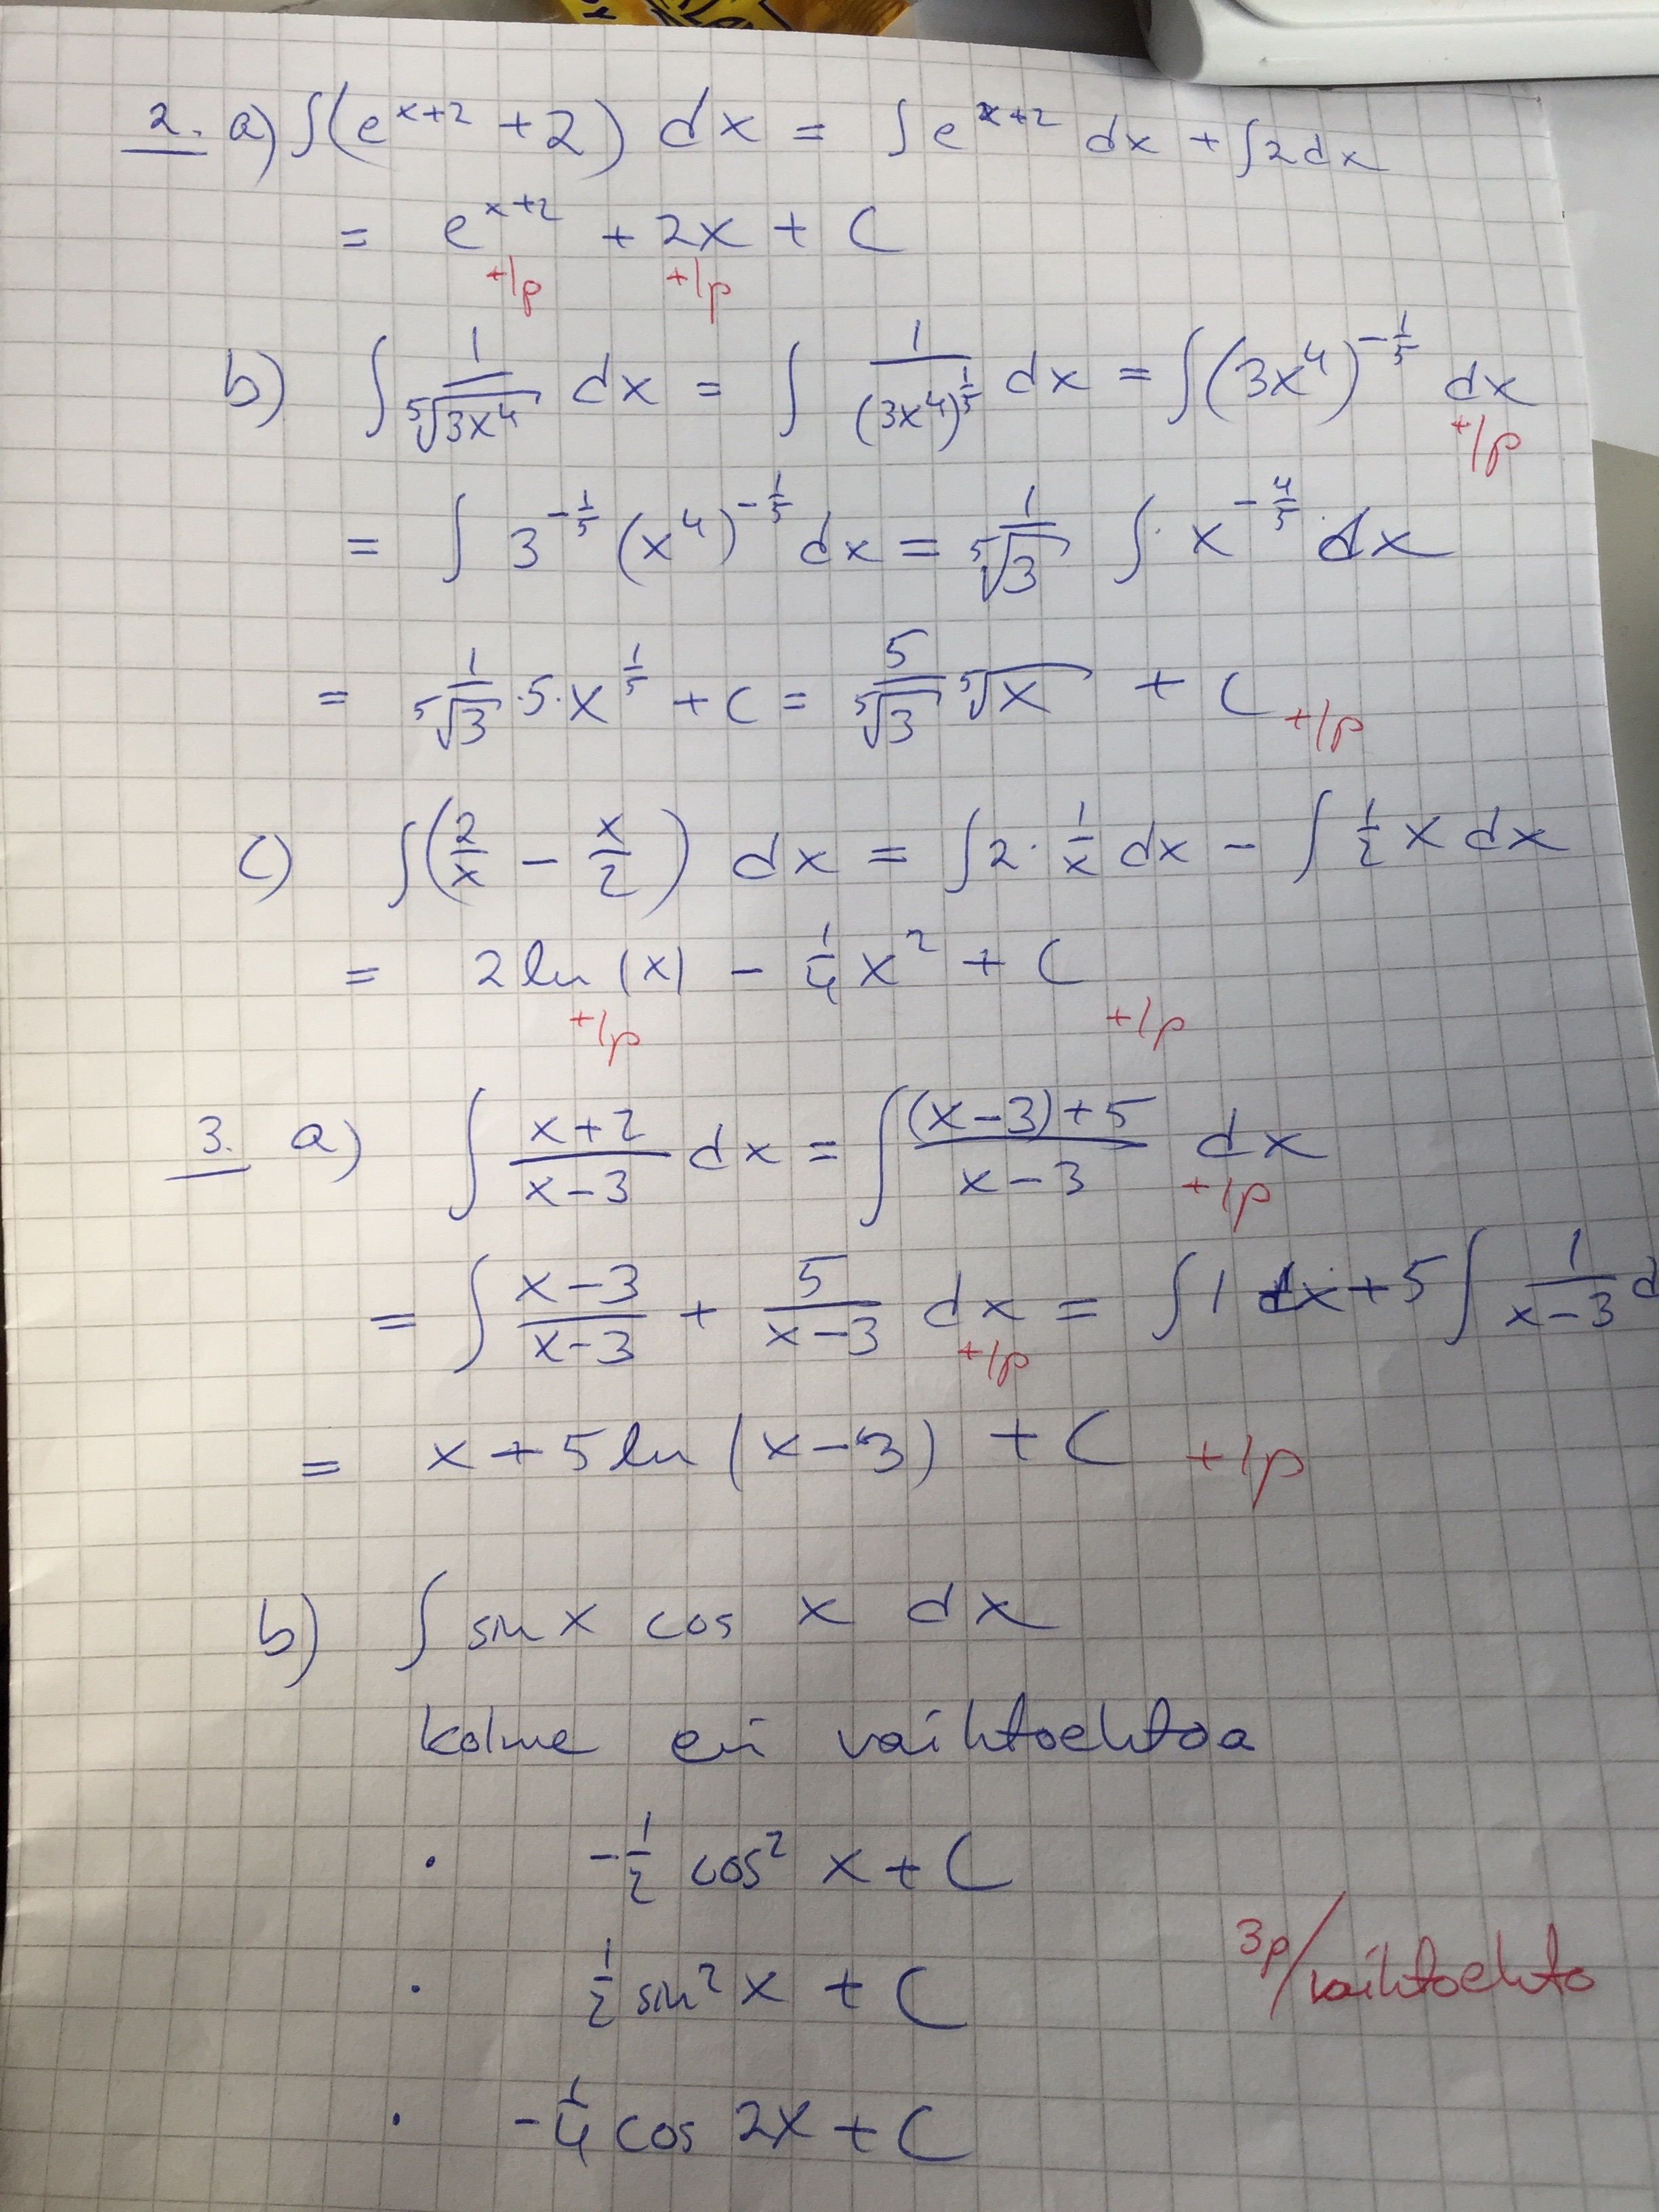 2. a) ∫(e^{x+2} + 2) dx = ∫e^{x+2} dx + ∫2dx
= e^{x+2} + 2x + C
+1p +1p
b) ∫ 1/⁵√(3x⁴) dx = ∫ 1/(3x⁴)^{1/5} dx = ∫(3x⁴)^{-1/5} dx
+1p
= ∫ 3^{-1/5} (x⁴)^{-1/5} dx = 1/⁵√3 ∫ x^{-4/5} dx
= 1/⁵√3 · 5 · x^{1/5} + C = 5/⁵√3 ⁵√x + C +1p
c) ∫(2/x − x/2) dx = ∫2 · 1/x dx − ∫ 1/2 x dx
= 2 ln (x) − 1/4 x² + C
+1p +1p
3. a) ∫ (x+2)/(x−3) dx = ∫ ((x−3)+5)/(x−3) dx
+1p
= ∫ (x−3)/(x−3) + 5/(x−3) dx = ∫ 1 dx + 5 ∫ 1/(x−3) d
+1p
= x + 5 ln (x−3) + C +1p
b) ∫ sin x cos x dx
kolme eri vaihtoehtoa
· −1/2 cos² x + C
3p/vaihtoehto
· 1/2 sin² x + C
· −1/4 cos 2x + C